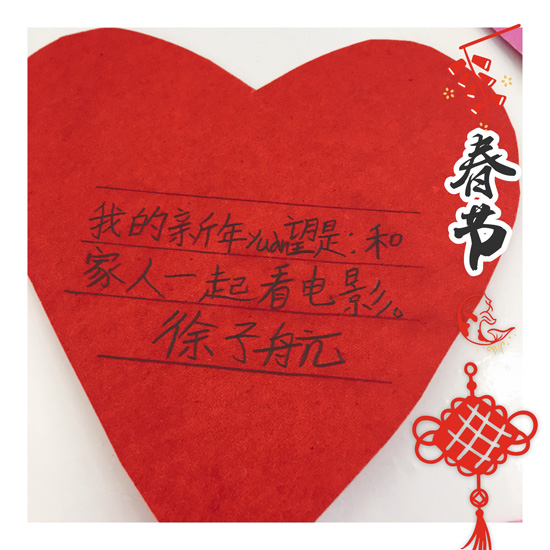 我的新年yuan望是:和
家人一起看电影。
徐子航
春节